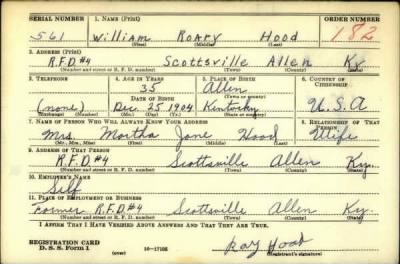 SERIAL NUMBER 1. NAME (Print) ORDER NUMBER
561 William Roary Hood 182
(First) (Middle) (Last)
2. ADDRESS (Print)
R.F.D.#4 Scottsville Allen Ky
(Number and street or R. F. D. number) (Town) (County) (State)
3. TELEPHONE 4. AGE IN YEARS 5. PLACE OF BIRTH 6. COUNTRY OF CITIZENSHIP
35 Allen
(Town or county)
DATE OF BIRTH
(none) Dec. 25 1904 Kentucky U.S.A
(Exchange) (Number) (Mo.) (Day) (Yr.) (State or country)
7. NAME OF PERSON WHO WILL ALWAYS KNOW YOUR ADDRESS 8. RELATIONSHIP OF THAT PERSON
Mrs. Martha Jane Hood Wife
(Mr., Mrs., Miss) (First) (Middle) (Last)
9. ADDRESS OF THAT PERSON
R.F.D.#4 Scottsville Allen Ky.
(Number and street or R. F. D. number) (Town) (County) (State)
10. EMPLOYER'S NAME
Self
11. PLACE OF EMPLOYMENT OR BUSINESS
R.F.D.#4 Scottsville Allen Ky.
(Number and street or R. F. D. number) (Town) (County) (State)
I AFFIRM THAT I HAVE VERIFIED ABOVE ANSWERS AND THAT THEY ARE TRUE.
REGISTRATION CARD
D. S. S. Form 1 (over) 16-17105 Hood
(Registrant's signature)